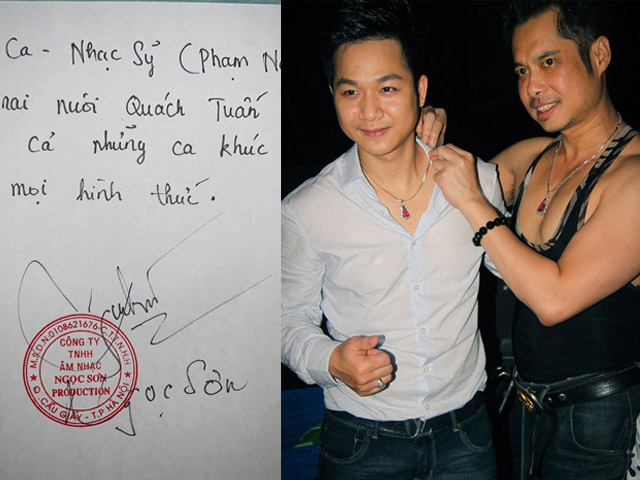 Ca - Nhạc Sỹ (Phạm Ng
rai nuôi Quách Tuấn
cả những ca khúc
mọi hình thức.
M.S.D.N:0108621676-C.T.T.N.H.H
CÔNG TY
TNHH
ÂM NHẠC
NGỌC SƠN
PRODUCTION
Q. CẦU GIẤY - T.P HÀ NỘI
Ngọc Sơn